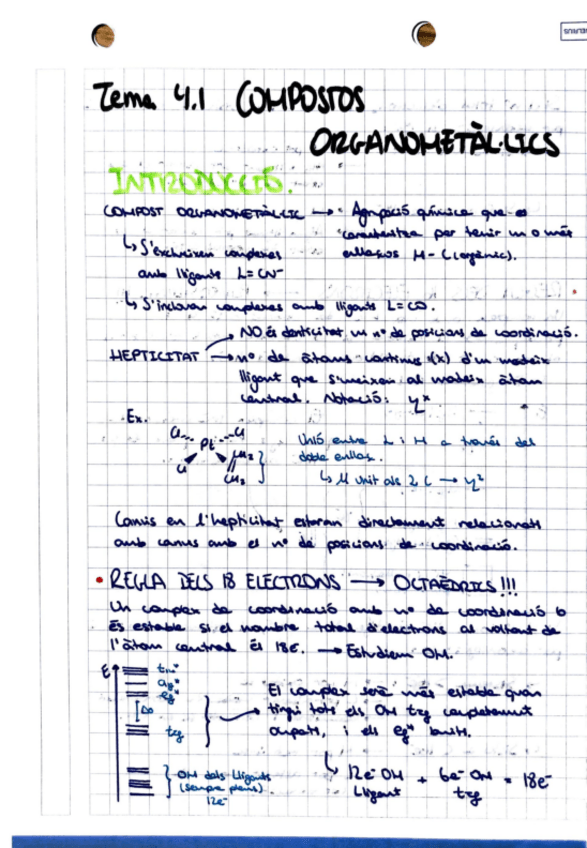 Tema 4.1 COMPOSTOS
ORGANOMETÀL·LICS
INTRODUCCIÓ.
COMPOST ORGANOMETÀL·LIC → Agrupació química que es
caracteritza per tenir un o més
enllaços M-C (orgànic).
↳ S'exclouixen complexes
amb lligants L=CN⁻
↳ S'inclouran complexes amb lligants L=CO.
NO és denticitat ni nº de posicions de coordinació.
HEPTICITAT → nº de àtoms continus (x) d'un mateix
lligant que s'uneixen al mateix àtom
central. Notació: η^x
Ex.
Cl Cl
Pt
Cl CH₂
CH₂
Unió entre L i M a través del
doble enllaç.
↳ M unit als 2 C → η²
Canvis en l'hepticitat estaran directament relacionats
amb canvis amb el nº de posicions de coordinació.
• REGLA DELS 18 ELECTRONS → OCTAÈDRICS!!!
Un complex de coordinació amb nº de coordinació 6
És estable si el nombre total d'electrons al voltant de
l'àtom central És 18E. → Estudiem OM.
E
t₁u*
a₁g*
eg*
Δo
t₂g
El complex serà més estable quan
tingui tots els OM t₂g completament
ocupats, i els eg* buits.
OM dels lligants
(sempre plens)
12e⁻
↳ 12e⁻ OM + 6e⁻ OM = 18e⁻
Lligant t₂g